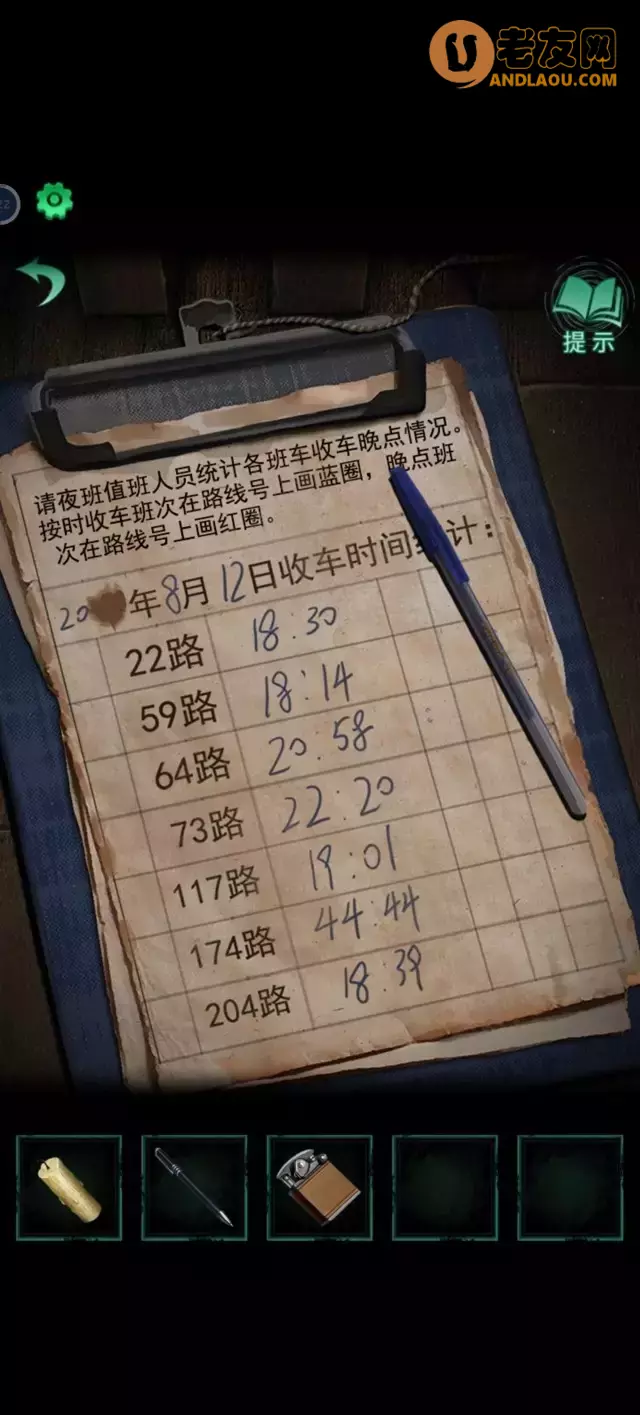 老友网
ANDLAOU.COM
提示
请夜班值班人员统计各班车收车晚点情况。
按时收车班次在路线号上画蓝圈，晚点班
次在路线号上画红圈。
20 年8月12日收车时间 计：
22路 18:30
59路 18:14
64路 20:58
73路 22:20
117路 19:01
174路 44:44
204路 18:39